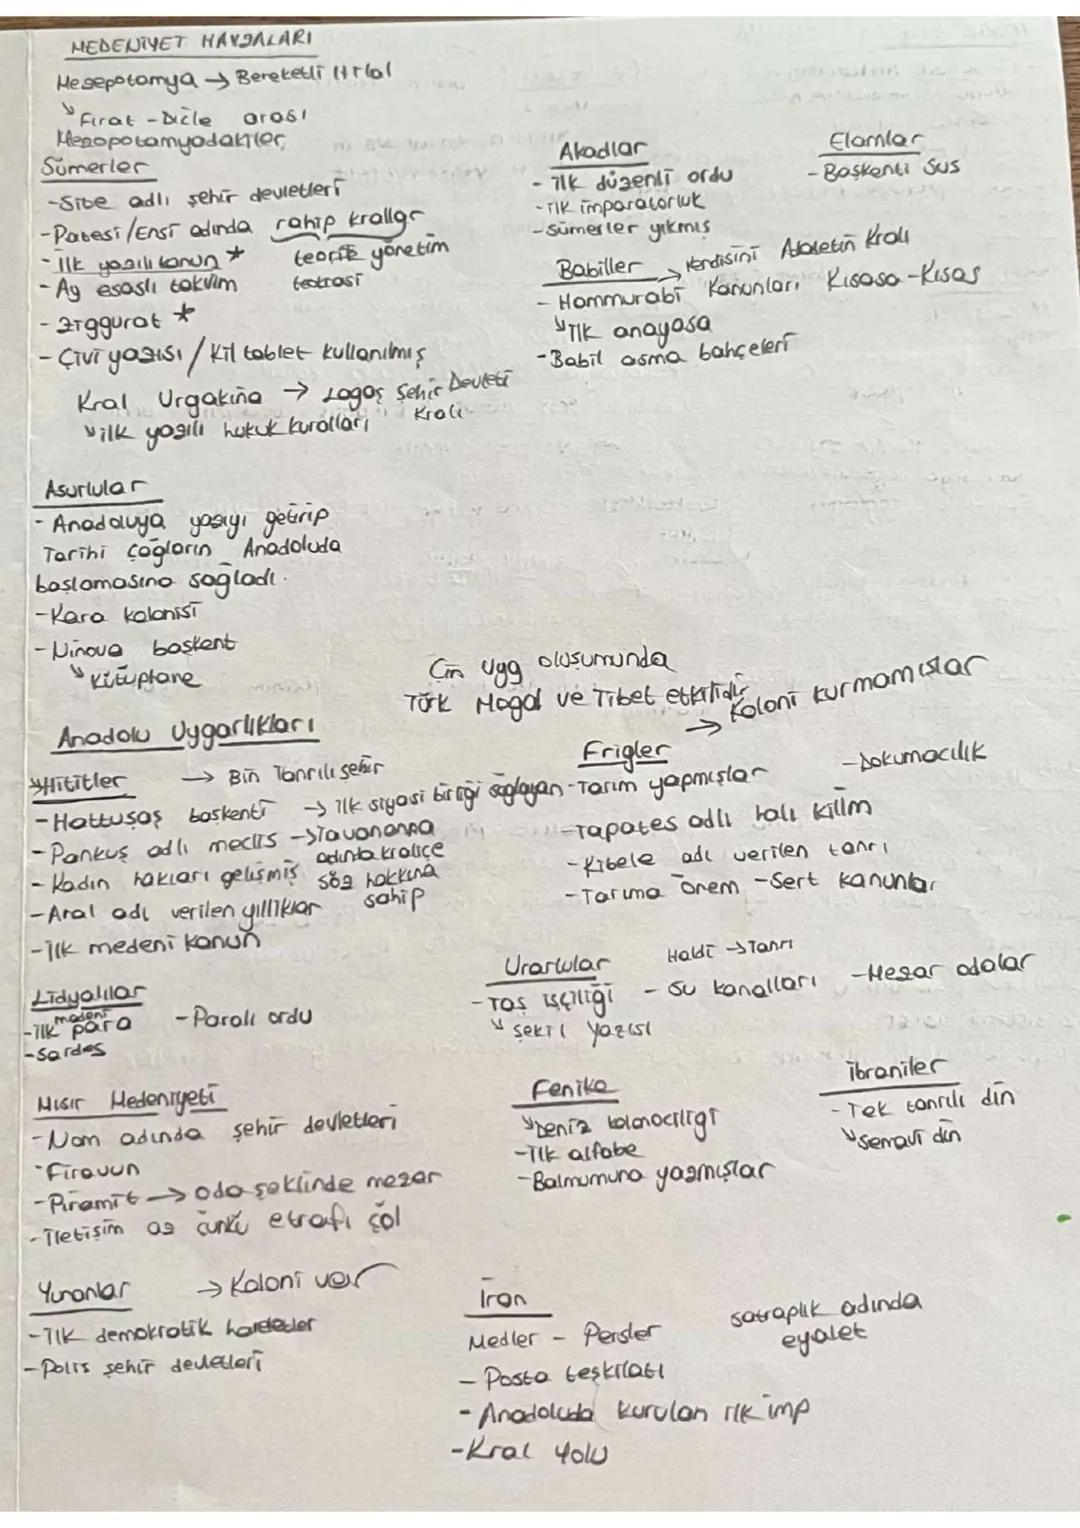 MEDENİYET HAVZALARI
Mezepotamya → Bereketli Hilal
↳ Fırat - Dicle arası
Mezopotamyadakiler,
Sümerler
- Site adlı şehir devletleri
- Patesi / Ensi adında rahip krallar
teorik yönetim
teokrasi
- İlk yazılı kanun *
- Ay esaslı takvim
- Ziggurat *
- Çivi yazısı / Kil tablet kullanılmış
Kral Urgakina → Lagaş Şehir Devleti Kralı
↳ ilk yazılı hukuk kuralları
Akadlar
- İlk düzenli ordu
- İlk imparatorluk
- Sümerler yıkmış
Elamlar
- Başkenti Sus
Babiller → Kendisini Adaletin Kralı
- Hammurabi Kanunları Kısasa - Kısas
↳ İlk anayasa
- Babil asma bahçeleri
Asurlular
- Anadoluya yazıyı getirip
Tarihi çağların Anadoluda
başlamasına sağladı.
- Kara kolonisi
- Ninova başkent
↳ Kütüphane
Çin uyg oluşumunda
Türk Mogol ve Tibet etkilidir
Anadolu Uygarlıkları
↳ Hititler → Bin Tanrılı şehir
- Hattuşaş başkenti → İlk siyasi birliği sağlayan
- Pankuş adlı meclis → Tavananna
adında kraliçe
söz hakkına
sahip
- Kadın hakları gelişmiş
- Anal adı verilen yıllıklar
- İlk medeni kanun
Frigler → Koloni kurmamışlar
- Tarım yapmışlar - Dokumacılık
- Tapates adlı halı kilim
- Kibele adı verilen tanrı
- Tarıma önem - Sert kanunlar
Lidyalılar
- İlk madeni para - Paralı ordu
- Sardes
Urartular Haldi → Tanrı
- Taş işçiliği - Su kanalları - Mezar odalar
↳ Şekil yazısı
Mısır Medeniyeti
- Nom adında şehir devletleri
- Firavun
- Piramit → oda şeklinde mezar
- İletişim az çünkü etrafı çöl
Fenike
↳ Deniz kolonociliği
- İlk alfabe
- Balmumuna yazmışlar
İbraniler
- Tek tanrılı din
↳ Semavi din
Yunanlar → Koloni var
- İlk demokratik hareketler
- Polis şehir devletleri
İran
Medler - Persler satraplık adında
eyalet
- Posta teşkilatı
- Anadoluda kurulan ilk imp
- Kral Yolu